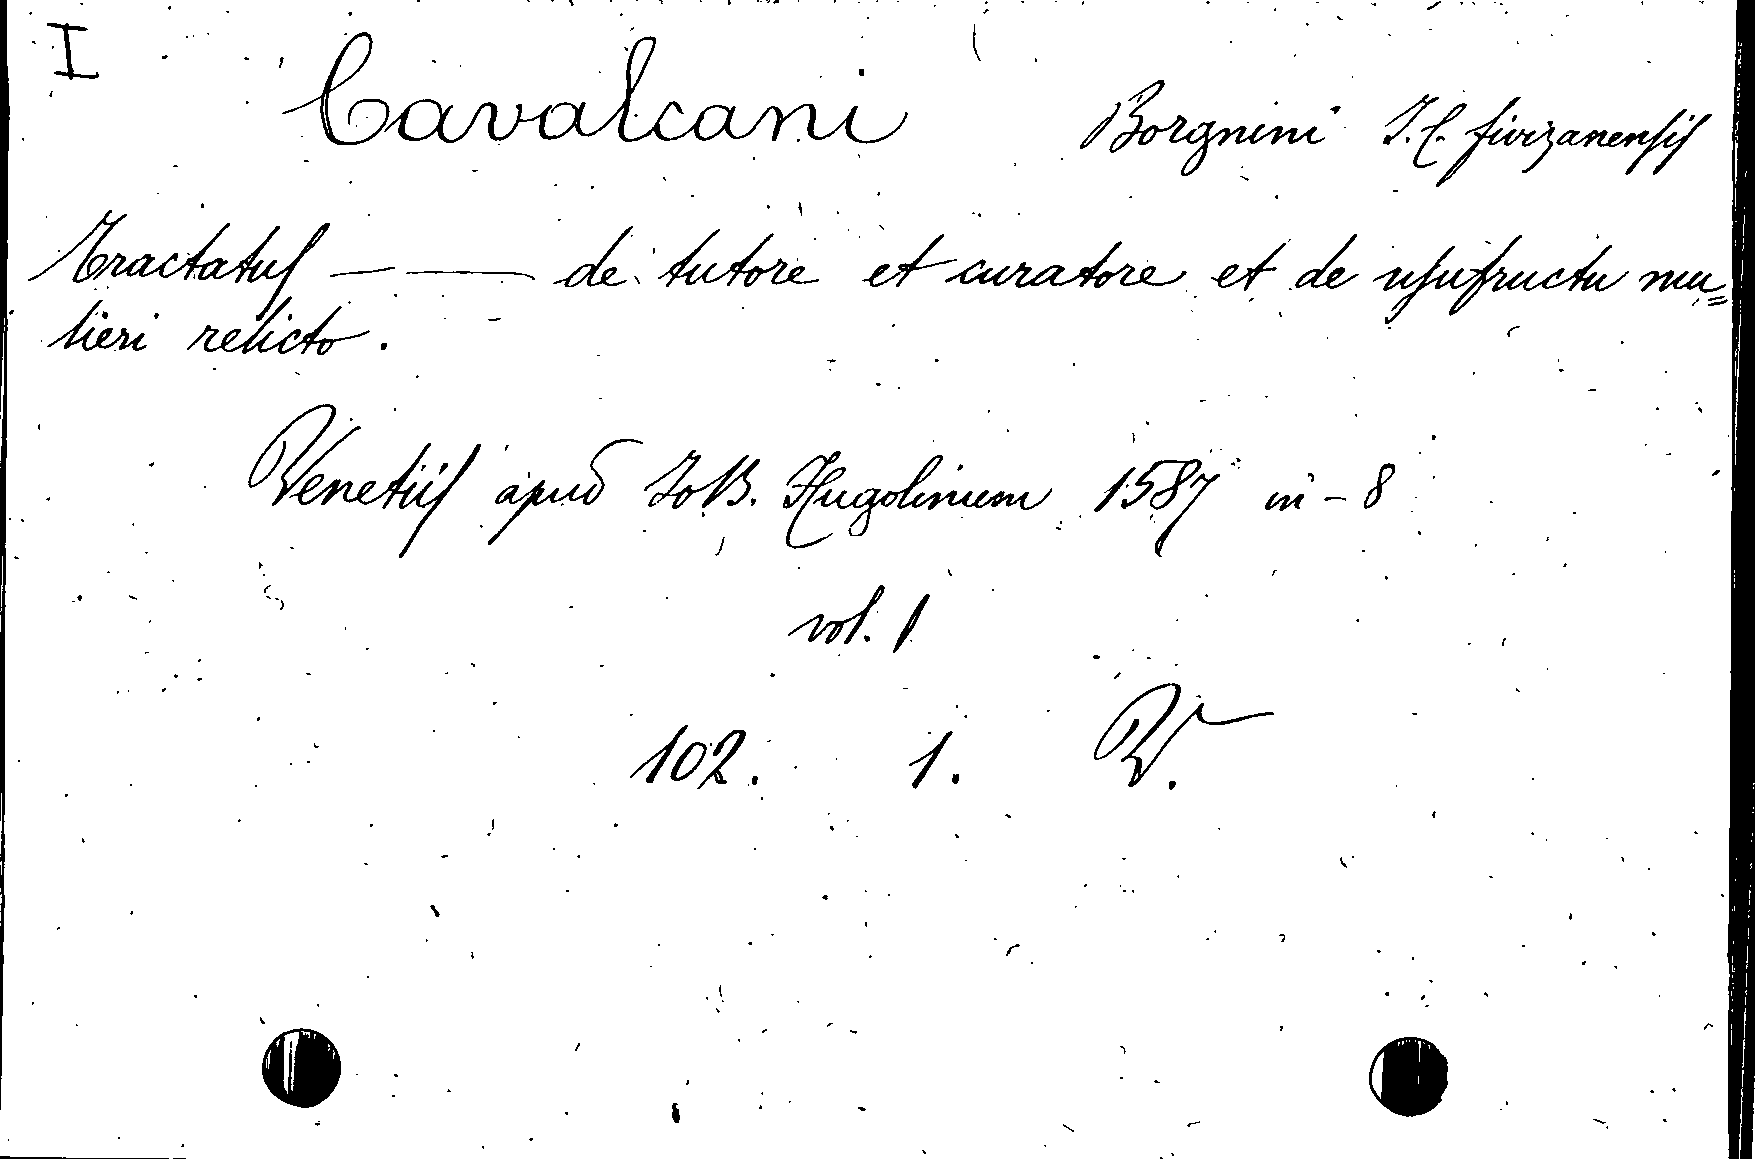 I
Cavalcani Borgnini J.C. fivizanensis
Tractatus — —— de tutore et curatore et de usufructu mu=
lieri relicto.
Venetiis apud Jo B. Hugolinum 1587 in - 8
vol. 1
102. 1. V.